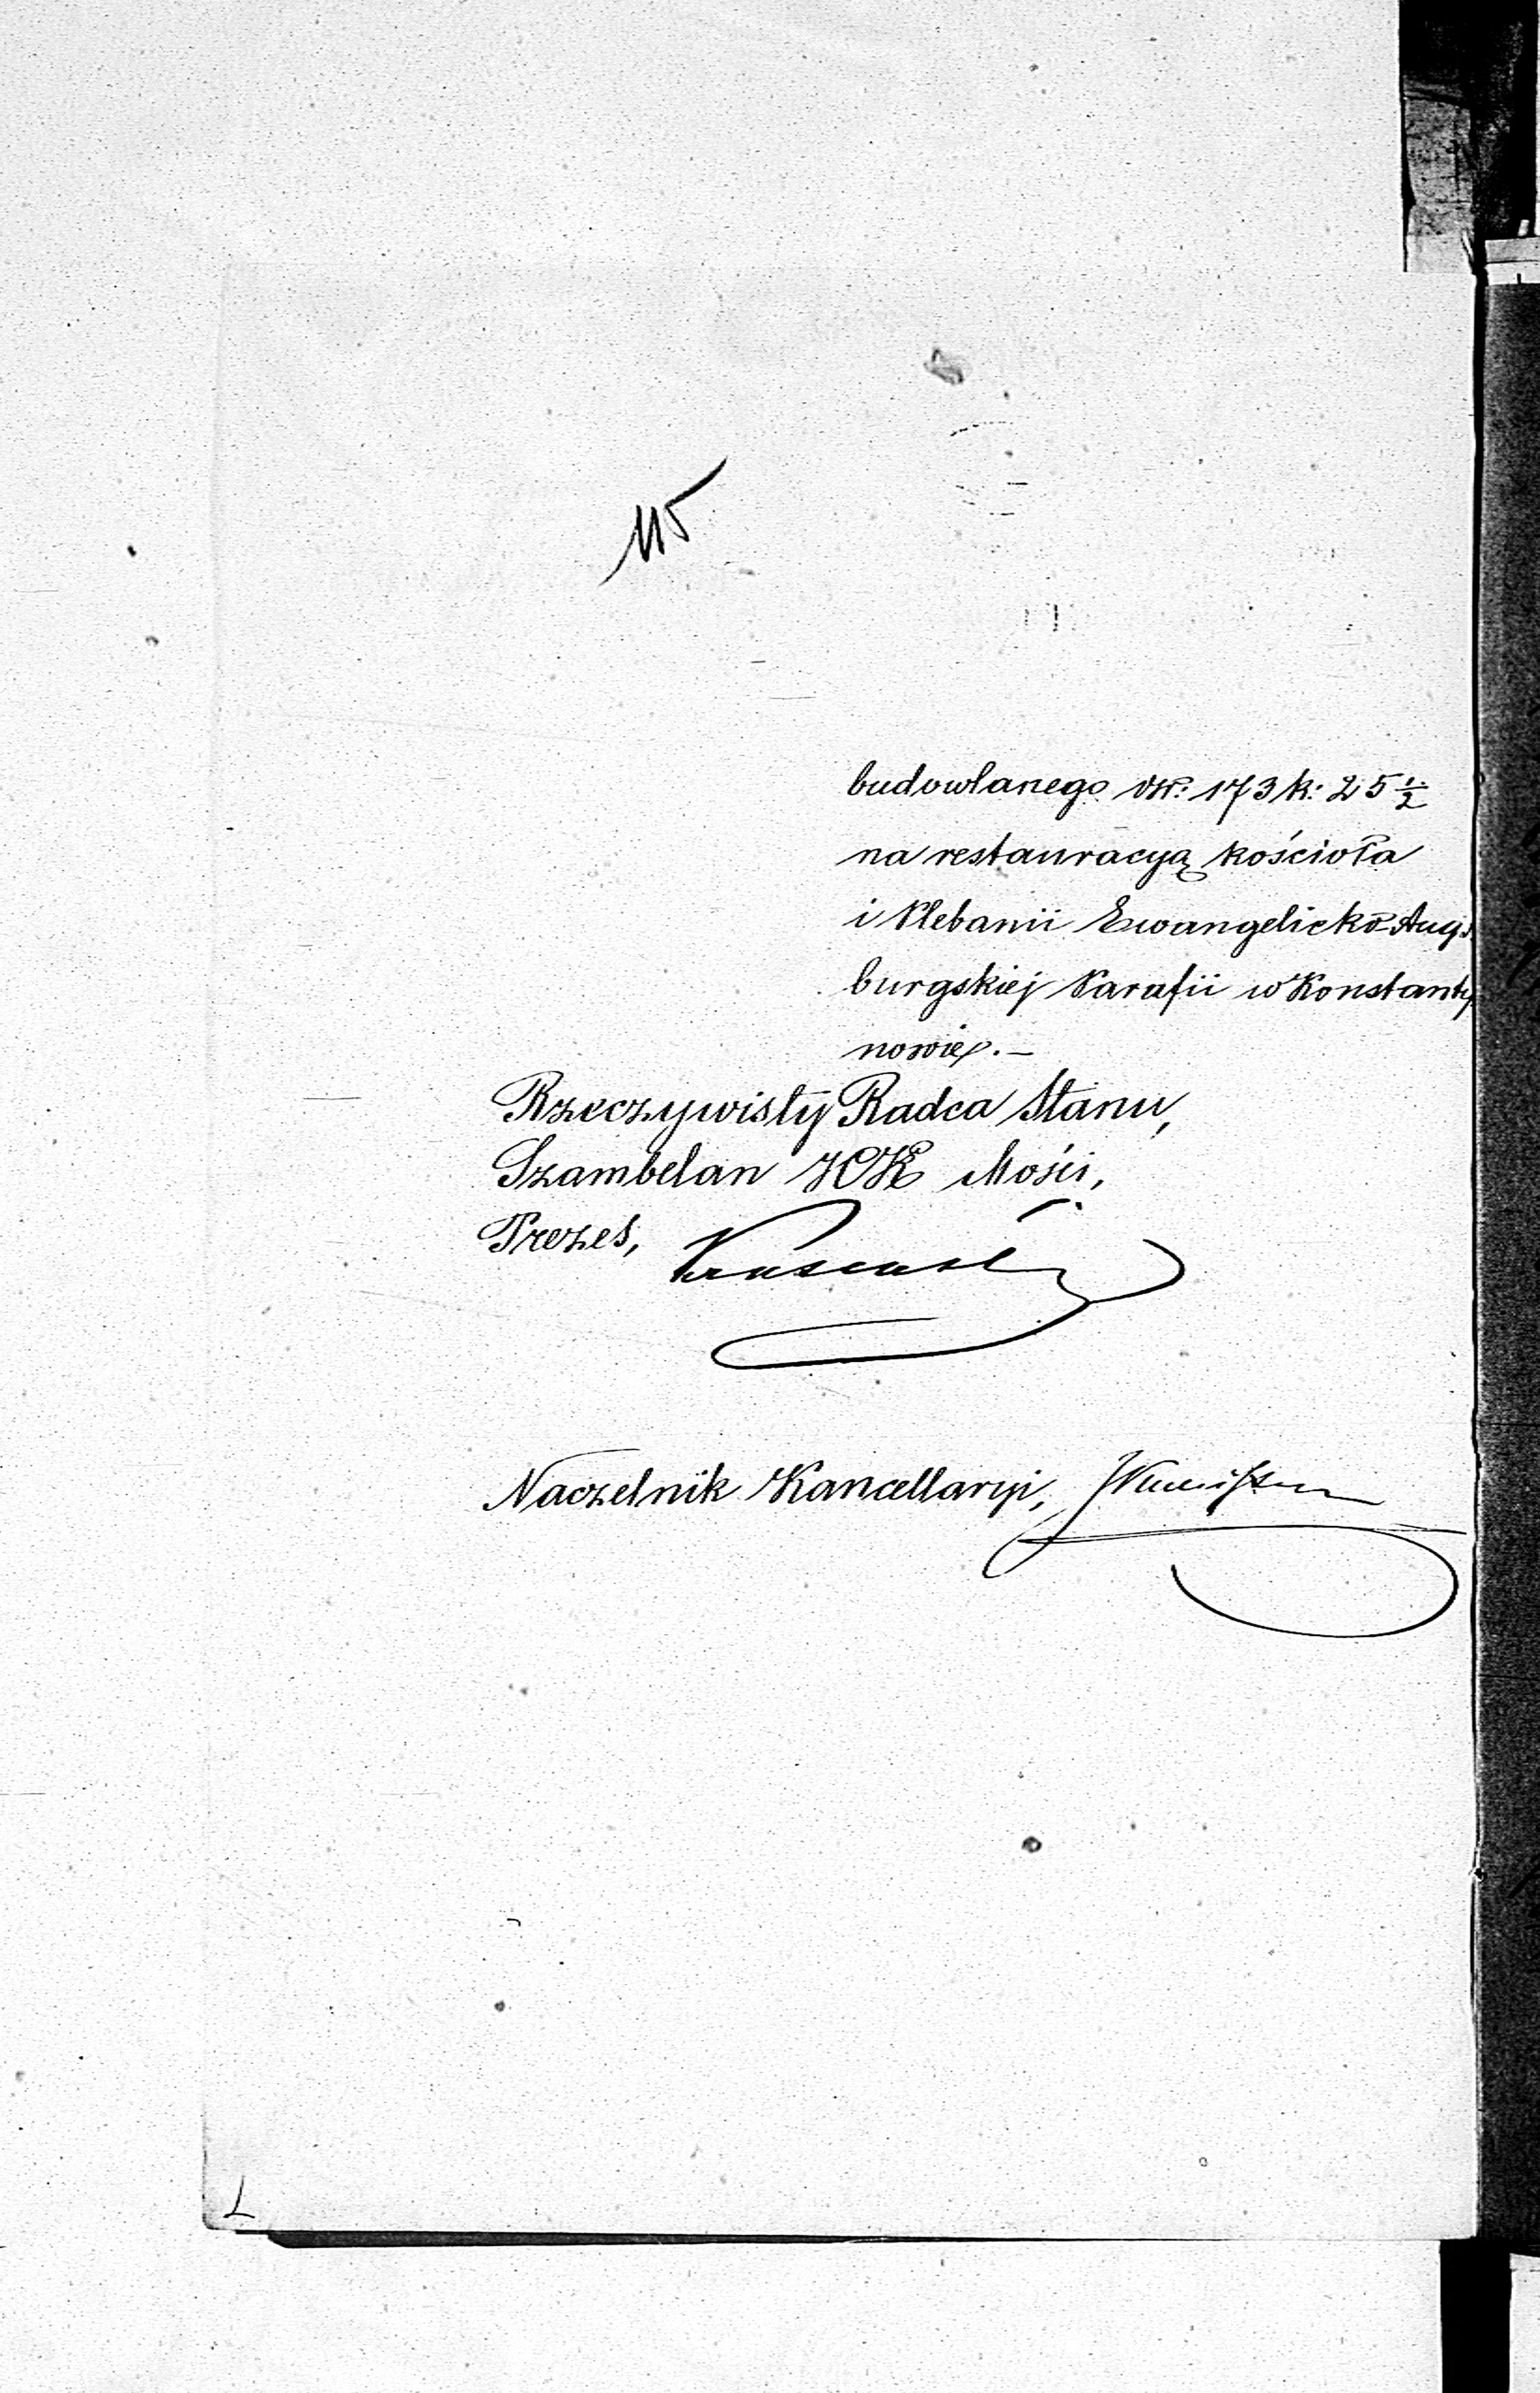 115
budowlanego rsr: 173 k: 25 1/2
na restauracyą kościoła
i Plebanii Ewangelicko-Augs
burgskiej Parafii w Konstanty
nowie. —
Rzeczywisty Radca Stanu,
Szambelan JCK Mości,
Prezes,
Naczelnik Kancellaryi,
L